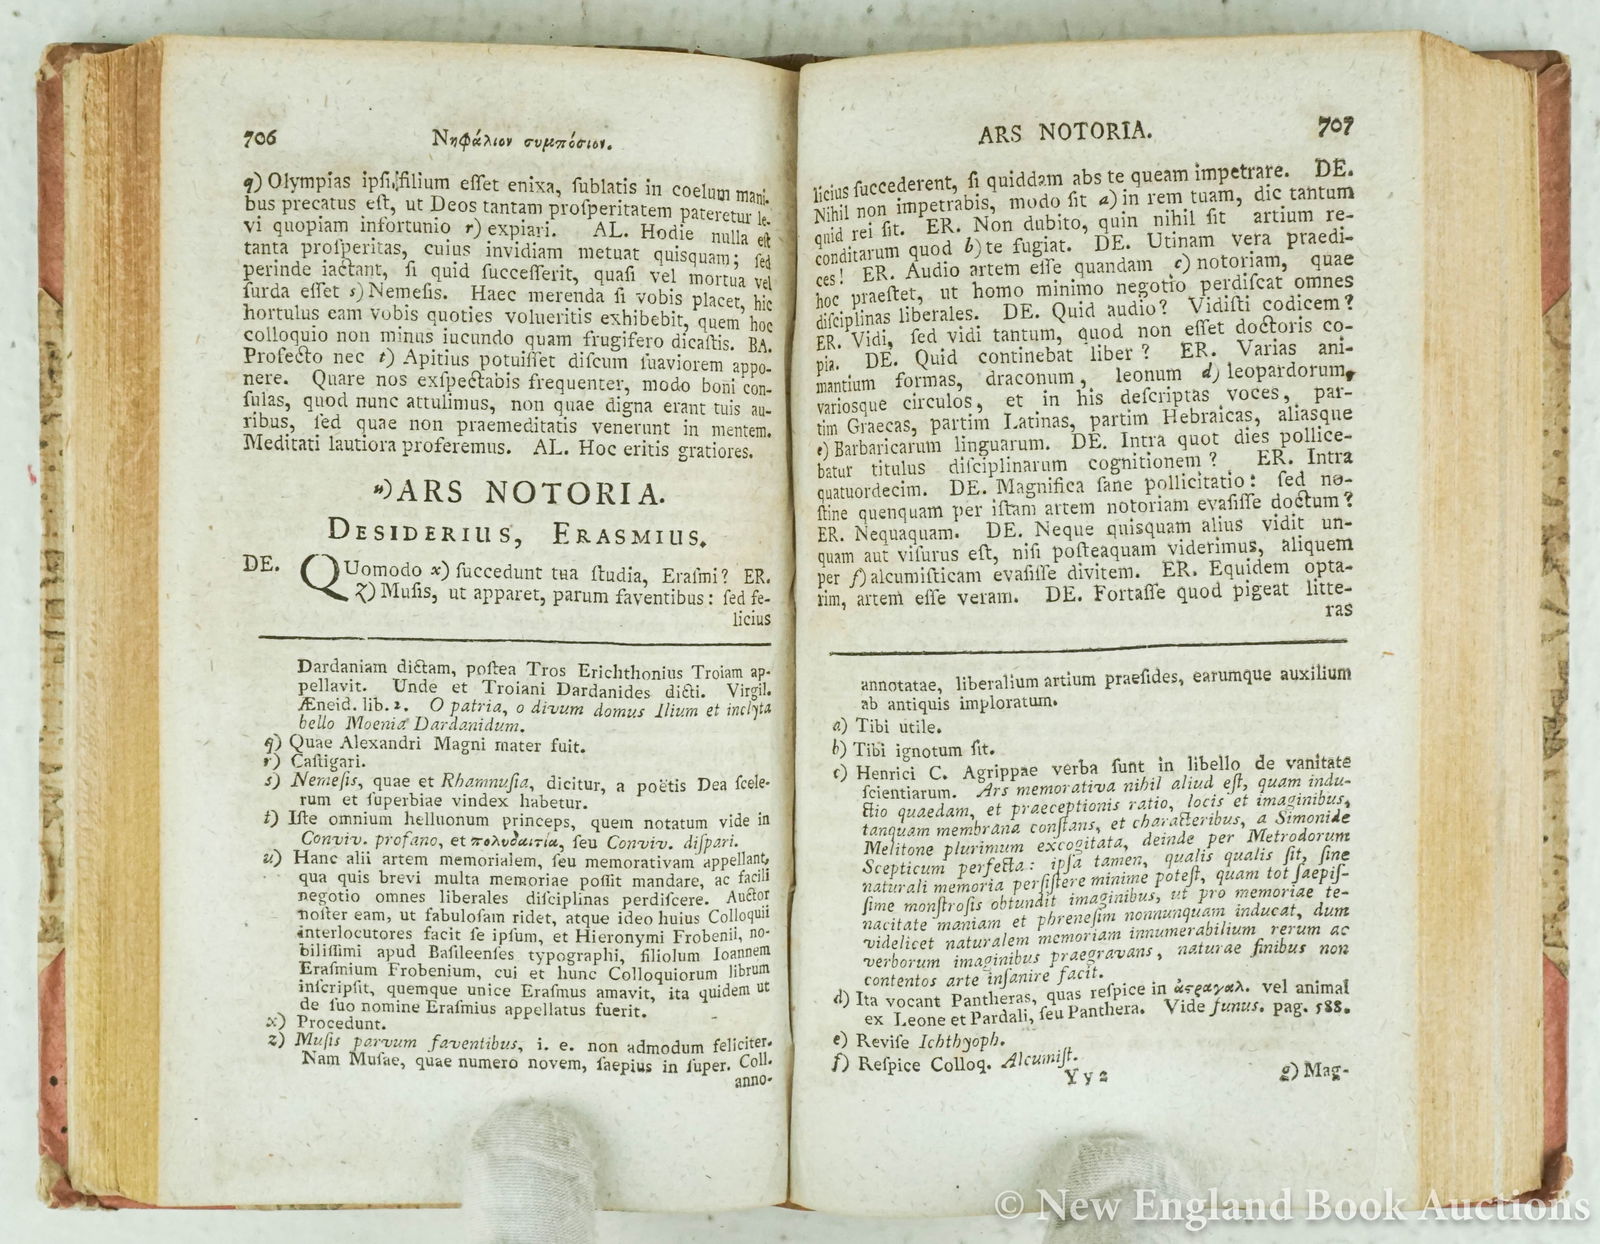 706 Νηφάλιον συμπόσιον.
q) Olympias ipſi filium eſſet enixa, ſublatis in coelum mani-
bus precatus eſt, ut Deos tantam proſperitatem pateretur le-
vi quopiam infortunio r) expiari. AL. Hodie nulla eſt
tanta proſperitas, cuius invidiam metuat quisquam; ſed
perinde iactant, ſi quid ſucceſſerit, quaſi vel mortua vel
ſurda eſſet s) Nemeſis. Haec merenda ſi vobis placet, hic
hortulus eam vobis quoties volueritis exhibebit, quem hoc
colloquio non minus iucundo quam frugifero dicaſtis. BA.
Profecto nec t) Apitius potuiſſet diſcum ſuaviorem appo-
nere. Quare nos exſpectabis frequenter, modo boni con-
ſulas, quod nunc attulimus, non quae digna erant tuis au-
ribus, ſed quae non praemeditatis venerunt in mentem.
Meditati lautiora proferemus. AL. Hoc eritis gratiores.
u) ARS NOTORIA.
DESIDERIUS, ERASMIUS.
DE. QUomodo x) ſuccedunt tua ſtudia, Eraſmi? ER.
z) Muſis, ut apparet, parum faventibus: ſed fe-
licius
Dardaniam dictam, poſtea Tros Erichthonius Troiam ap-
pellavit. Unde et Troiani Dardanides dicti. Virgil.
Æneid. lib. 2. O patria, o divum domus Ilium et inclyta
bello Moenia Dardanidum.
q) Quae Alexandri Magni mater fuit.
r) Caſtigari.
s) Nemeſis, quae et Rhamnuſia, dicitur, a poëtis Dea ſcele-
rum et ſuperbiae vindex habetur.
t) Iſte omnium helluonum princeps, quem notatum vide in
Conviv. profano, et πολυδαιτία, ſeu Conviv. diſpari.
u) Hanc alii artem memorialem, ſeu memorativam appellant,
qua quis brevi multa memoriae poſſit mandare, ac facili
negotio omnes liberales diſciplinas perdiſcere. Auctor
noſter eam, ut fabuloſam ridet, atque ideo huius Colloquii
interlocutores facit ſe ipſum, et Hieronymi Frobenii, no-
biliſſimi apud Baſileenſes typographi, filiolum Ioannem
Eraſmium Frobenium, cui et hunc Colloquiorum librum
inſcripſit, quemque unice Eraſmus amavit, ita quidem ut
de ſuo nomine Eraſmius appellatus fuerit.
x) Procedunt.
z) Muſis parvum faventibus, i. e. non admodum feliciter.
Nam Muſae, quae numero novem, ſaepius in ſuper. Coll.
anno-
ARS NOTORIA. 707
licius ſuccederent, ſi quiddam abs te queam impetrare. DE.
Nihil non impetrabis, modo ſit a) in rem tuam, dic tantum
quid rei ſit. ER. Non dubito, quin nihil ſit artium re-
conditarum quod b) te fugiat. DE. Utinam vera praedi-
ces! ER. Audio artem eſſe quandam c) notoriam, quae
hoc praeſtet, ut homo minimo negotio perdiſcat omnes
diſciplinas liberales. DE. Quid audio? Vidiſti codicem?
ER. Vidi, ſed vidi tantum, quod non eſſet doctoris co-
pia. DE. Quid continebat liber? ER. Varias ani-
mantium formas, draconum, leonum d) leopardorum,
variosque circulos, et in his deſcriptas voces, par-
tim Graecas, partim Latinas, partim Hebraicas, aliasque
e) Barbaricarum linguarum. DE. Intra quot dies pollice-
batur titulus diſciplinarum cognitionem? ER. Intra
quatuordecim. DE. Magnifica ſane pollicitatio: ſed no-
ſtine quenquam per iſtam artem notoriam evaſiſſe doctum?
ER. Nequaquam. DE. Neque quisquam alius vidit un-
quam aut viſurus eſt, niſi poſteaquam viderimus, aliquem
per f) alcumiſticam evaſiſſe divitem. ER. Equidem opta-
rim, artem eſſe veram. DE. Fortaſſe quod pigeat litte-
ras
annotatae, liberalium artium praeſides, earumque auxilium
ab antiquis imploratum.
a) Tibi utile.
b) Tibi ignotum ſit.
c) Henrici C. Agrippae verba ſunt in libello de vanitate
ſcientiarum. Ars memorativa nihil aliud eſt, quam indu-
ctio quaedam, et praeceptionis ratio, locis et imaginibus,
tanquam membrana conſtans, et characteribus, a Simonide
Melitone plurimum excogitata, deinde per Metrodorum
Scepticum perfecta: ipſa tamen, qualis qualis ſit, ſine
naturali memoria perſiſtere minime poteſt, quam tot ſaepiſ-
ſime monſtroſis obtundit imaginibus, ut pro memoriae te-
nacitate maniam et phreneſim nonnunquam inducat, dum
videlicet naturalem memoriam innumerabilium rerum ac
verborum imaginibus praegravans, naturae finibus non
contentos arte inſanire facit.
d) Ita vocant Pantheras, quas reſpice in ἀςραγαλ. vel animal
ex Leone et Pardali, ſeu Panthera. Vide funus. pag. 588.
e) Reviſe Ichthyoph.
f) Reſpice Colloq. Alcumiſt.
Y y 2 g) Mag-
© New England Book Auctions